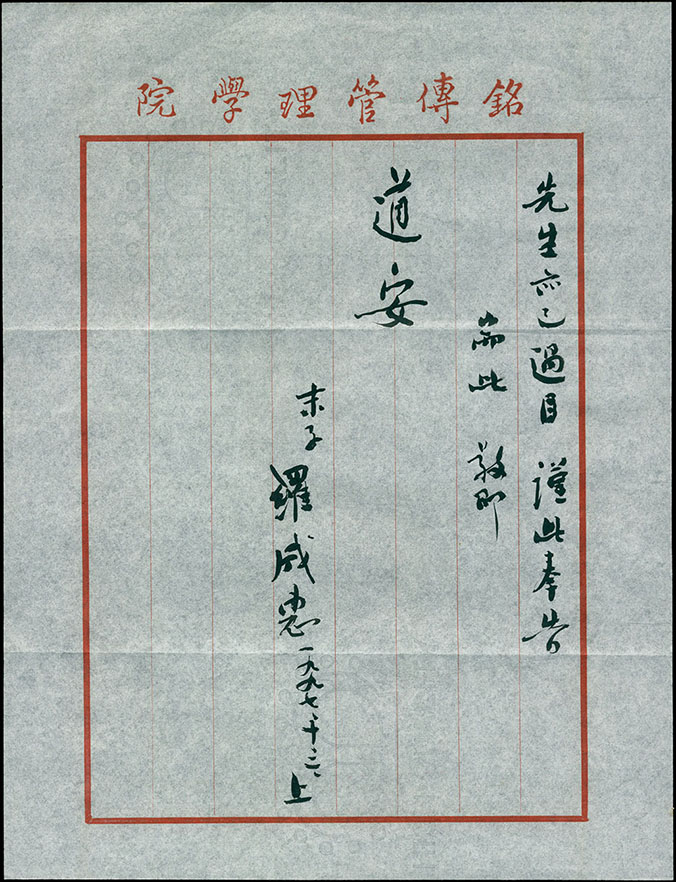 銘傳管理學院
先生亦已過目 謹此奉告
耑此 敬叩
道安
末 羅 一九九七、十 上